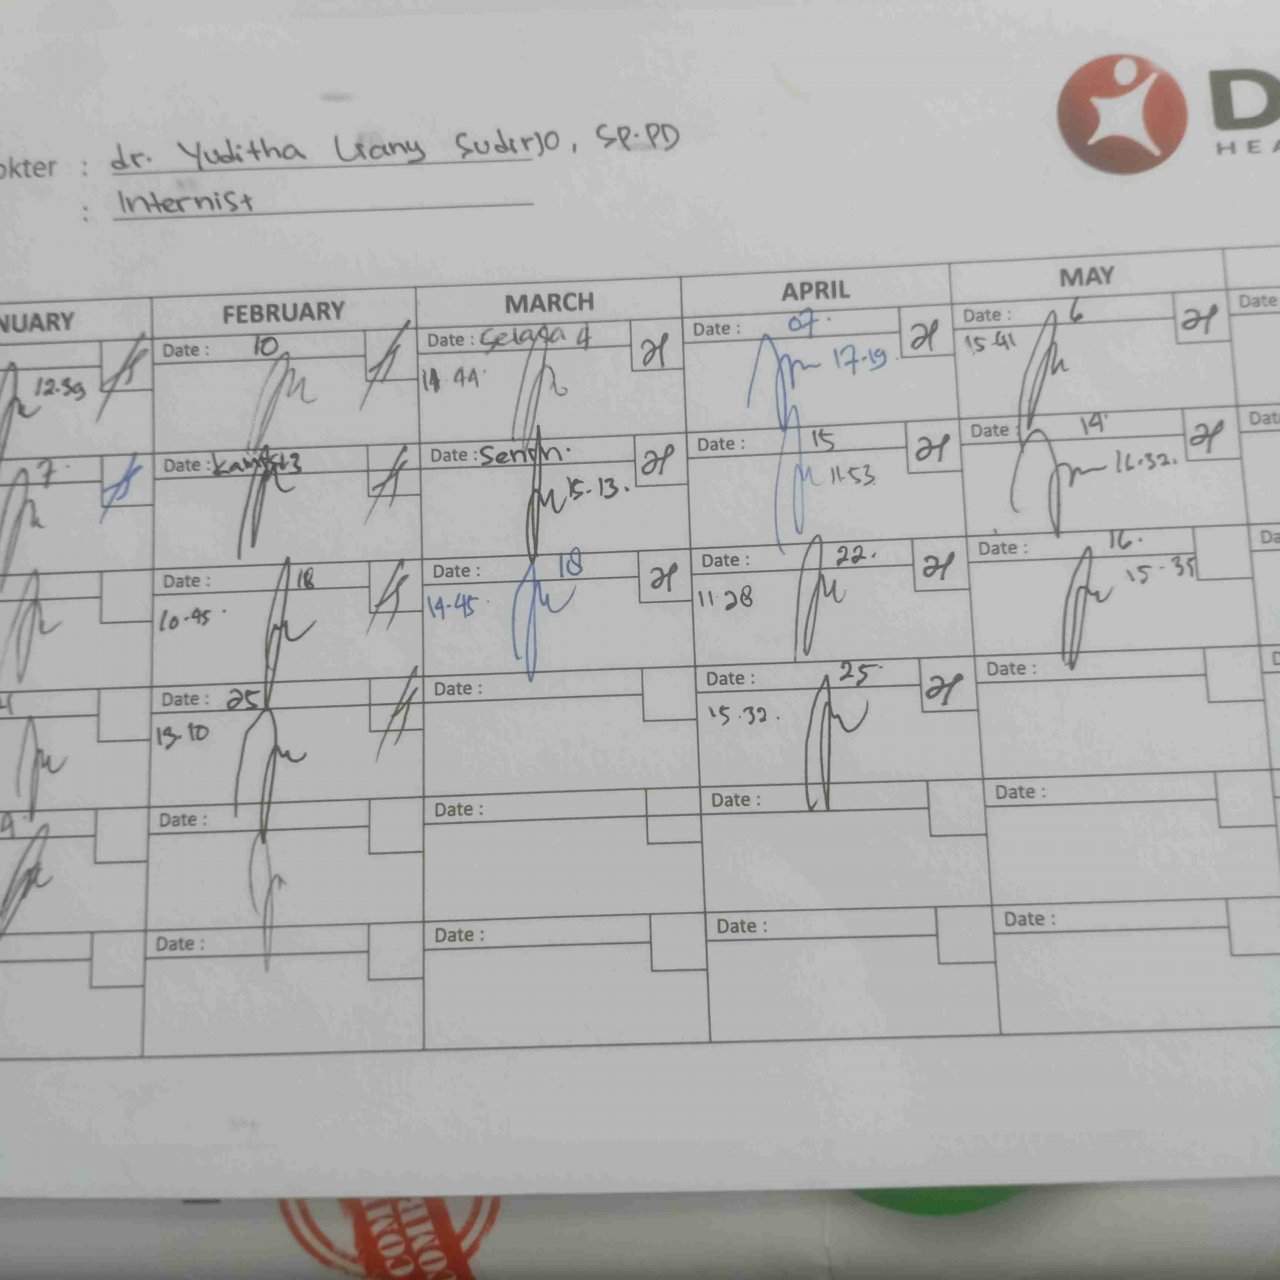 okter : dr. Yuditha Liany Sudirjo, SP.PD
: Internist
D
HEA
NUARY FEBRUARY MARCH APRIL MAY
Date : 10 Date : Selasa 4 Date : 07. Date : 6 Date
12.39 14.44 17.19 15.41
7 Date : Kamis 13 Date : Senin. Date : 15 Date : 14 Dat
15.13. 11.53 16.32.
Date : 18 Date : 18 Date : 22. Date : 16. Da
10.45 14.45 11.28 15.35
Date : 25 Date : Date : 25 Date : D
13.10 15.32.
Date : Date : Date : Date :
Date : Date : Date : Date :
COM